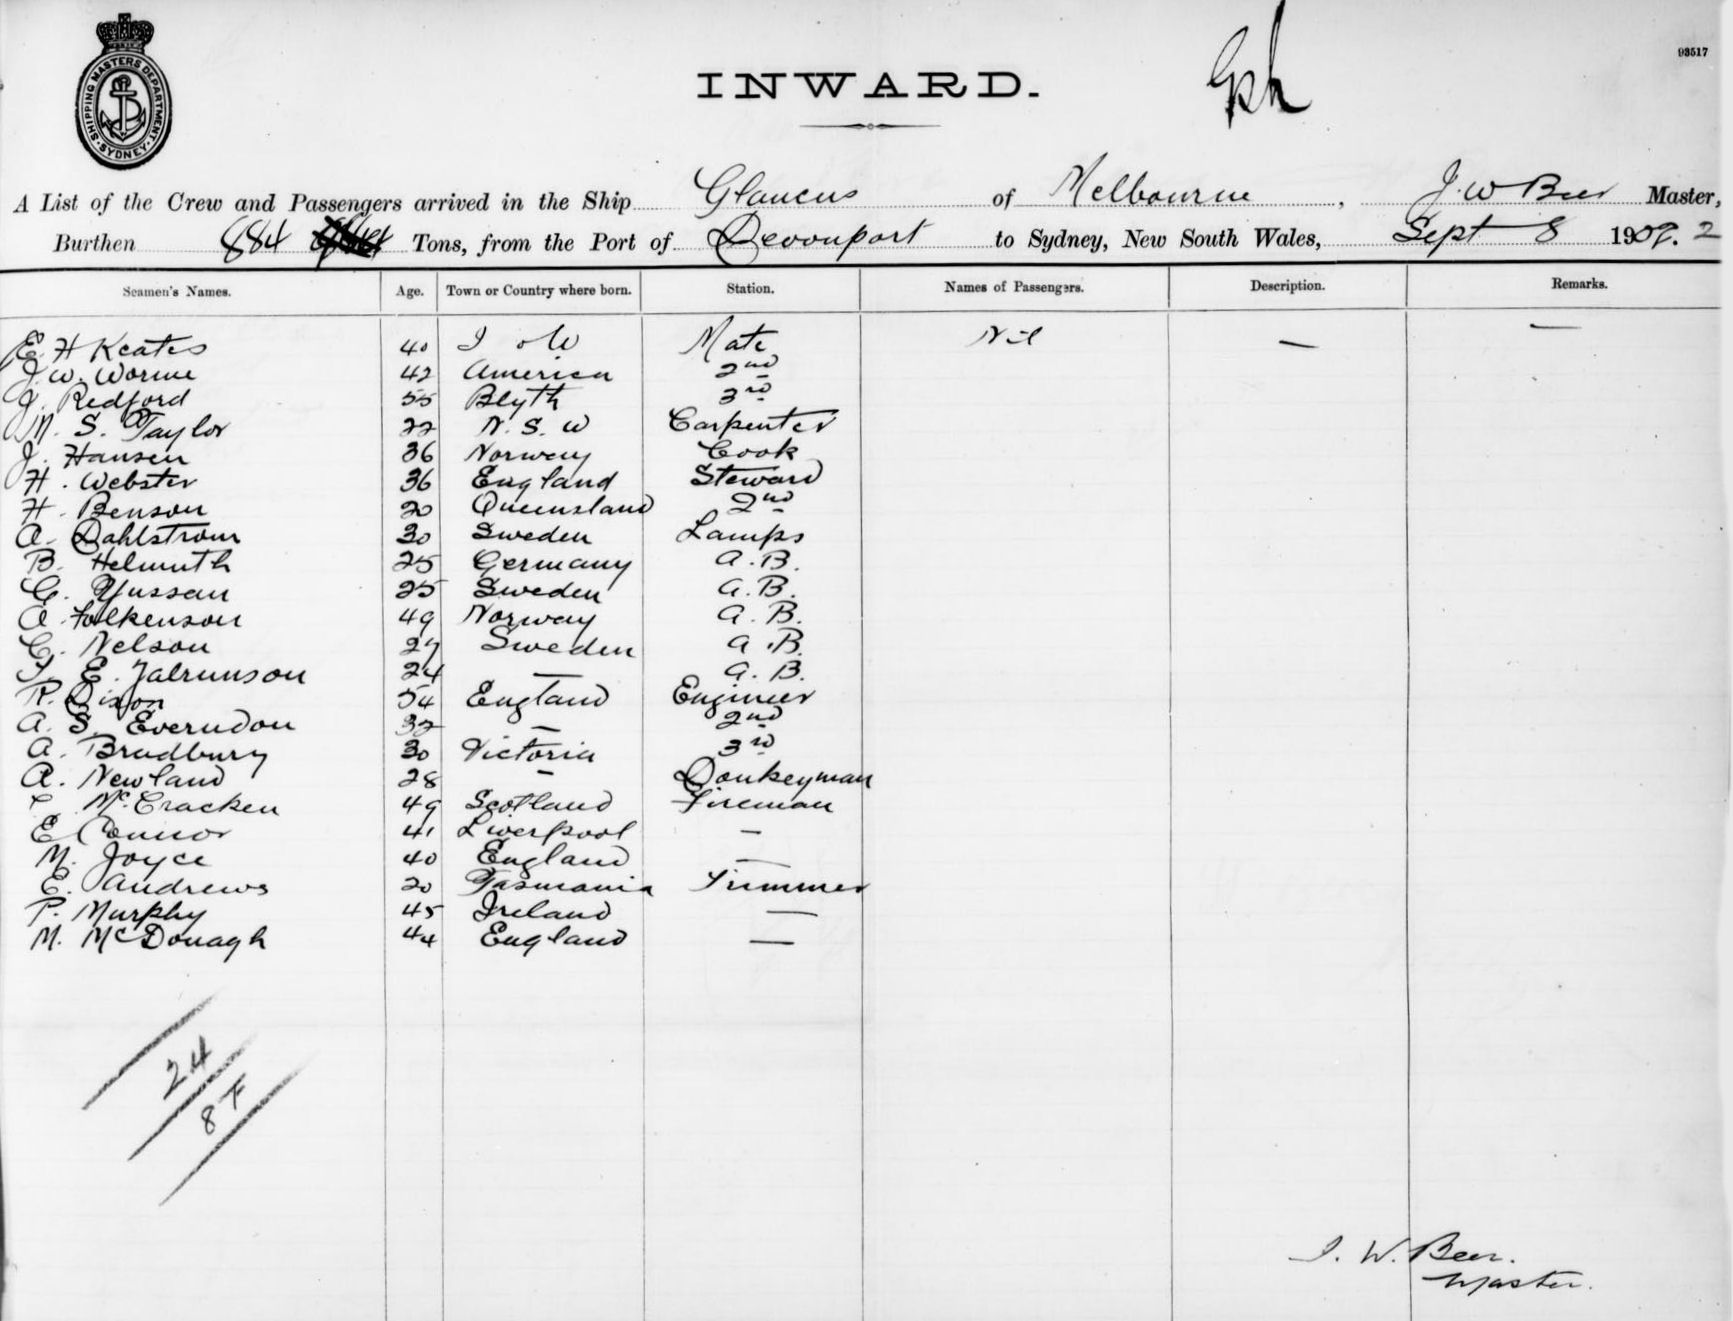 SHIPPING MASTERS DEPARTMENT · SYDNEY ·
93517
INWARD.
A List of the Crew and Passengers arrived in the Ship Glaucus of Melbourne, J. W Beer Master,
Burthen 884 Tons, from the Port of Devonport to Sydney, New South Wales, Sept 8 1902. 2
Seamen's Names. Age. Town or Country where born. Station. Names of Passengers. Description. Remarks.
E. H Keates 40 I o W Mate Nil — —
J. W. Worme 42 America 2nd
J. Redford 55 Blyth 3rd
W. S. Taylor 22 N. S. W Carpenter
J. Hansen 36 Norway Cook
H. Webster 36 England Steward
H. Benson 20 Queensland 2nd
A. Dahlstrom 30 Sweden Lamps
B. Helmuth 25 Germany A. B.
C. 25 Sweden A. B.
A. Folkenson 49 Norway A. B.
C. Nelson 27 Sweden A. B.
E. 24 — A. B.
R. Dixon 54 England Engineer
A. S. Everndon 32 — 2nd
A. Bradbury 30 Victoria 3rd
A. Newland 28 — Donkeyman
McCracken 49 Scotland Fireman
E Connor 41 Liverpool —
M. Joyce 40 England —
E. Andrews 20 Tasmania Trimmer
P. Murphy 45 Ireland —
M. McDonagh 44 England —
24
8 F
J. W. Beer.
Master.